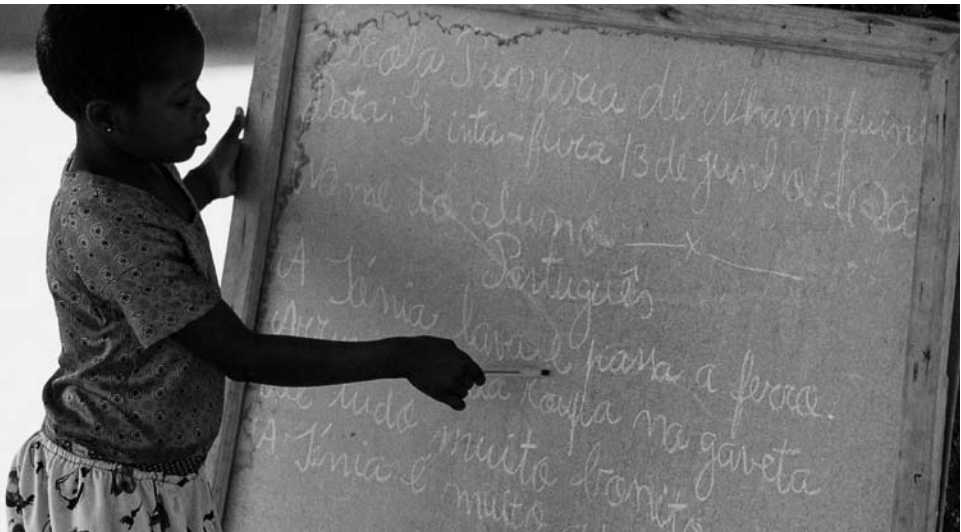 Escola Primária de
Data: 5 inta-feira 13 de junho de 200
Nome do aluno x
Português
A Tánia lava e passa a ferro.
a roupa na gaveta
tudo muito bonito
A Tánia é muito